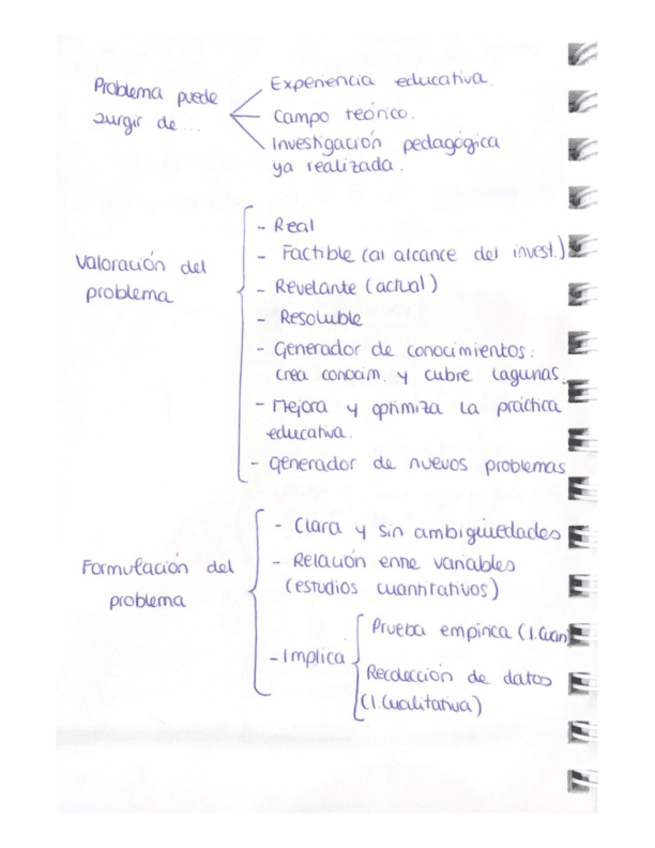 Problema puede
surgir de...
Experiencia educativa.
Campo teórico.
Investigación pedagógica
ya realizada.
Valoración del
problema
- Real
- Factible (al alcance del invest.)
- Revelante (actual)
- Resoluble
- Generador de conocimientos:
crea conocim. y cubre lagunas.
- Mejora y optimiza la práctica
educativa.
- Generador de nuevos problemas
Formulación del
problema
- Clara y sin ambigüedades
- Relación entre variables
(estudios cuantitativos)
- Implica
Prueba empírica (I.Cuan
Recolección de datos
(I.Cualitativa)